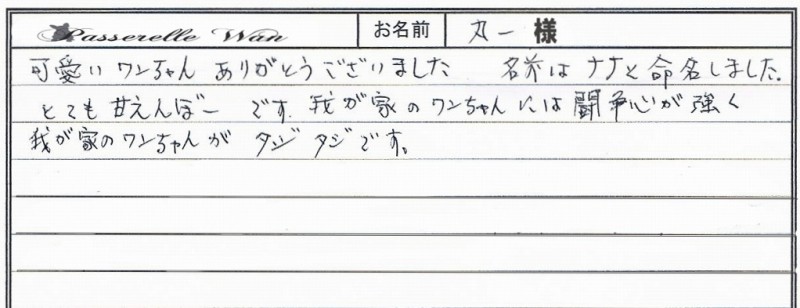 Passerelle Wan お名前 カー 様
可愛い ワンちゃん ありがとうございました 名前は ナナと 命名しました.
とても 甘えんぼー です. 我が家のワンちゃんには 闘争心が 強く
我が家のワンちゃんが タジ タジです。